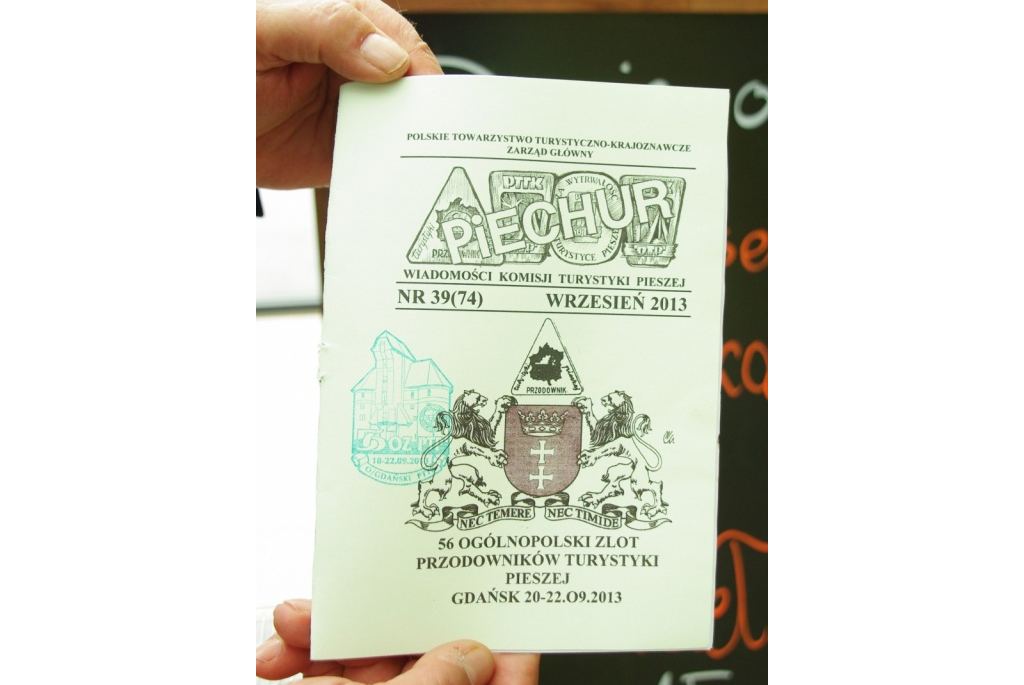 POLSKIE TOWARZYSTWO TURYSTYCZNO-KRAJOZNAWCZE
ZARZĄD GŁÓWNY
PTTK
WYTRWAŁOŚĆ
PiECHUR
Turystyki
TURYSTYCE PIESZEJ
OTP
WIADOMOŚCI KOMISJI TURYSTYKI PIESZEJ
NR 39(74) WRZESIEŃ 2013
PRZODOWNIK
NEC TEMERE NEC TIMIDE
56 OGÓLNOPOLSKI ZLOT
PRZODOWNIKÓW TURYSTYKI
PIESZEJ
GDAŃSK 20-22.O9.2013